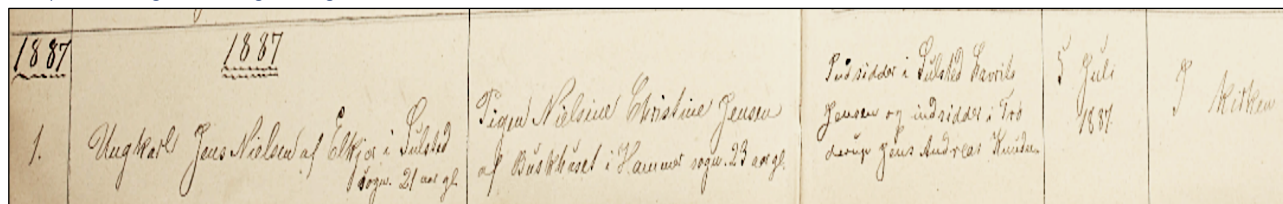 1887
1887
1.
Ungkarl Jens Nielsen af Elkjær i Sulsted
sogn. 21 aar gl.
Pigen Nielsine Christine Jensen
af Buskhuset i Hammer sogn. 23 aar gl.
Indsidder i Sulsted Lavrits
Jensen og indsidder i
Jens Andreas Knuds.
5 Juli
1887.
I Kirken